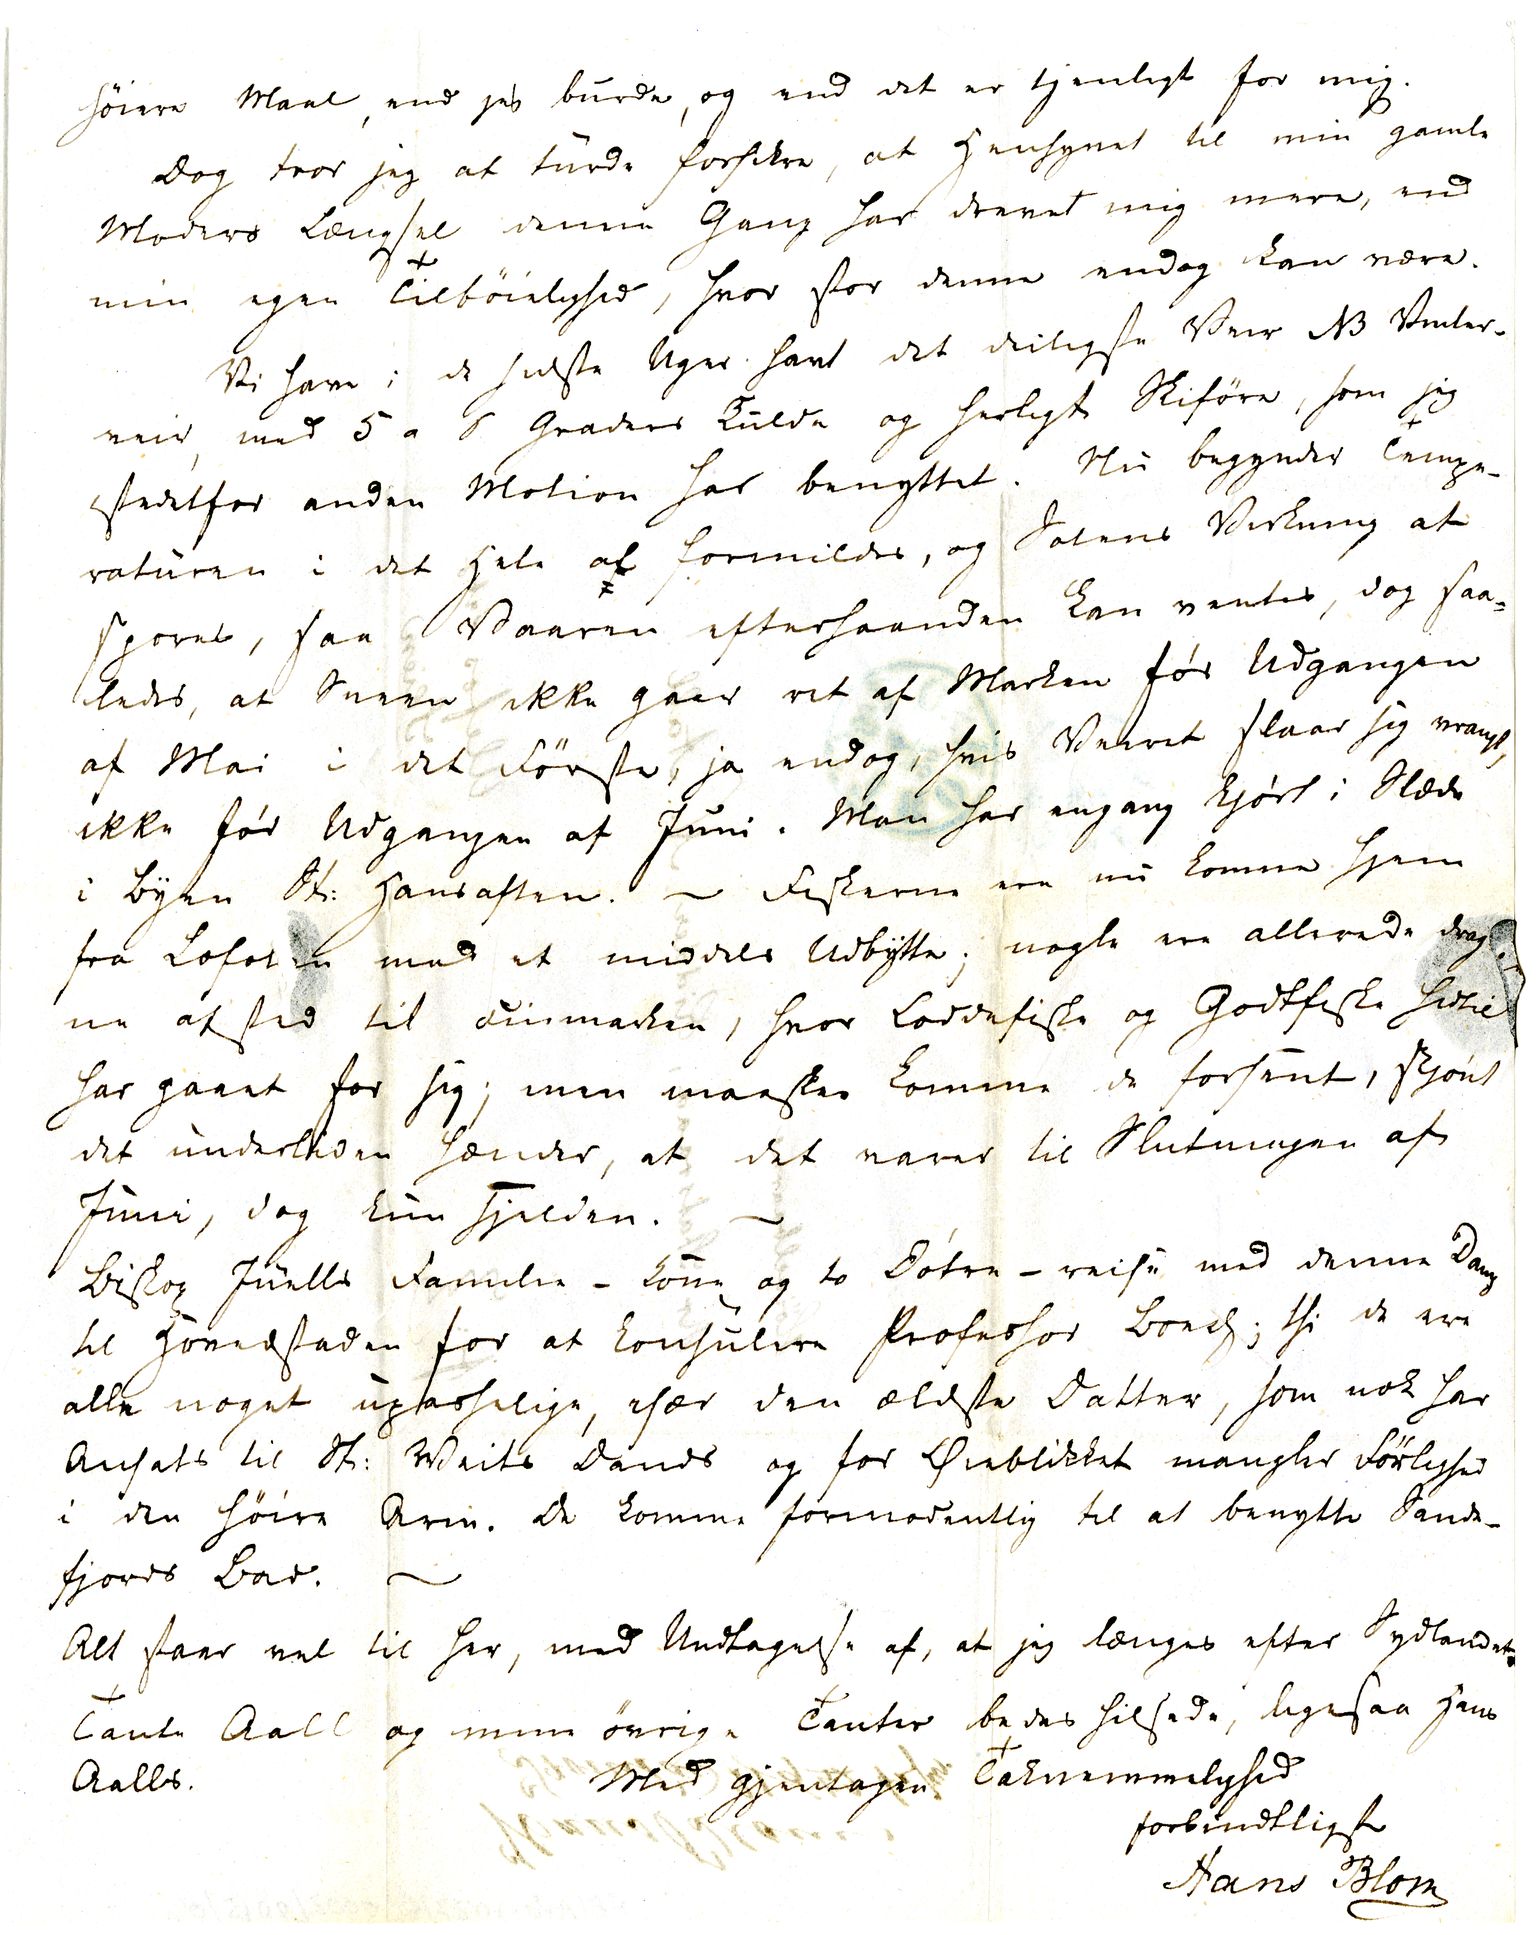 höiere Maal, end jeg burde, og end det er tjenligt for mig.
Dog tror jeg at turde forsikre, at Hensynet til min gamle
Moders Længsel denne Gang har drevet mig mere, end
min egen Tilböielighed, hvor stor denne endog kan være.
Vi have i de sidste Uger havt det deiligste Veir NB Vinter-
veir, med 5 a 6 Graders Kulde og herligt Skiföre, som jeg
istedetfor anden Motion har benyttet. Nu begynder Tempe-
raturen i det Hele at formildes, og Solens Virkning at
spores, saa Vaaren efterhaanden kan ventes, dog saa-
ledes, at Sneen ikke gaar ret af Marken för Udgangen
af Mai i det Förste, ja endog, hvis Veiret slaar sig vrangt,
ikke för Udgangen af Juni. Man har engang kjört i Slæde
i Byen St: Hansaften. ~ Fiskerne ere nu komne hjem
fra Lofoten med et middels Udbytte; nogle ere allerede drag-
ne afsted til Finmarken, hvor Loddefiske og Godtfiske hidtil
har gaaet for sig; men maaskee komme de forsent, skjönt
det undertiden hænder, at det varer til Slutningen af
Juni, dog kun sjelden. ~
Biskop Juells Familie - Kone og to Dötre - reise med denne Damp
til Hovedstaden for at konsulere Professor Boeck; thi de ere
alle noget upasselige, især den ældste Datter, som nok har
Ansats til St: Veits Dands og for Öieblikket mangler Förlighed
i den höire Arm. De komme formodentlig til at benytte Sande-
fjords Bad. ~
Alt staar vel til her, med Undtagelse af, at jeg længes efter Sydlandet.
Tante Aall og mine övrige Tanter bedes hilsede, ligesaa Hans
Aalls.
Med gjentagen Taknemmelighed
forbindtligst
Hans Blom